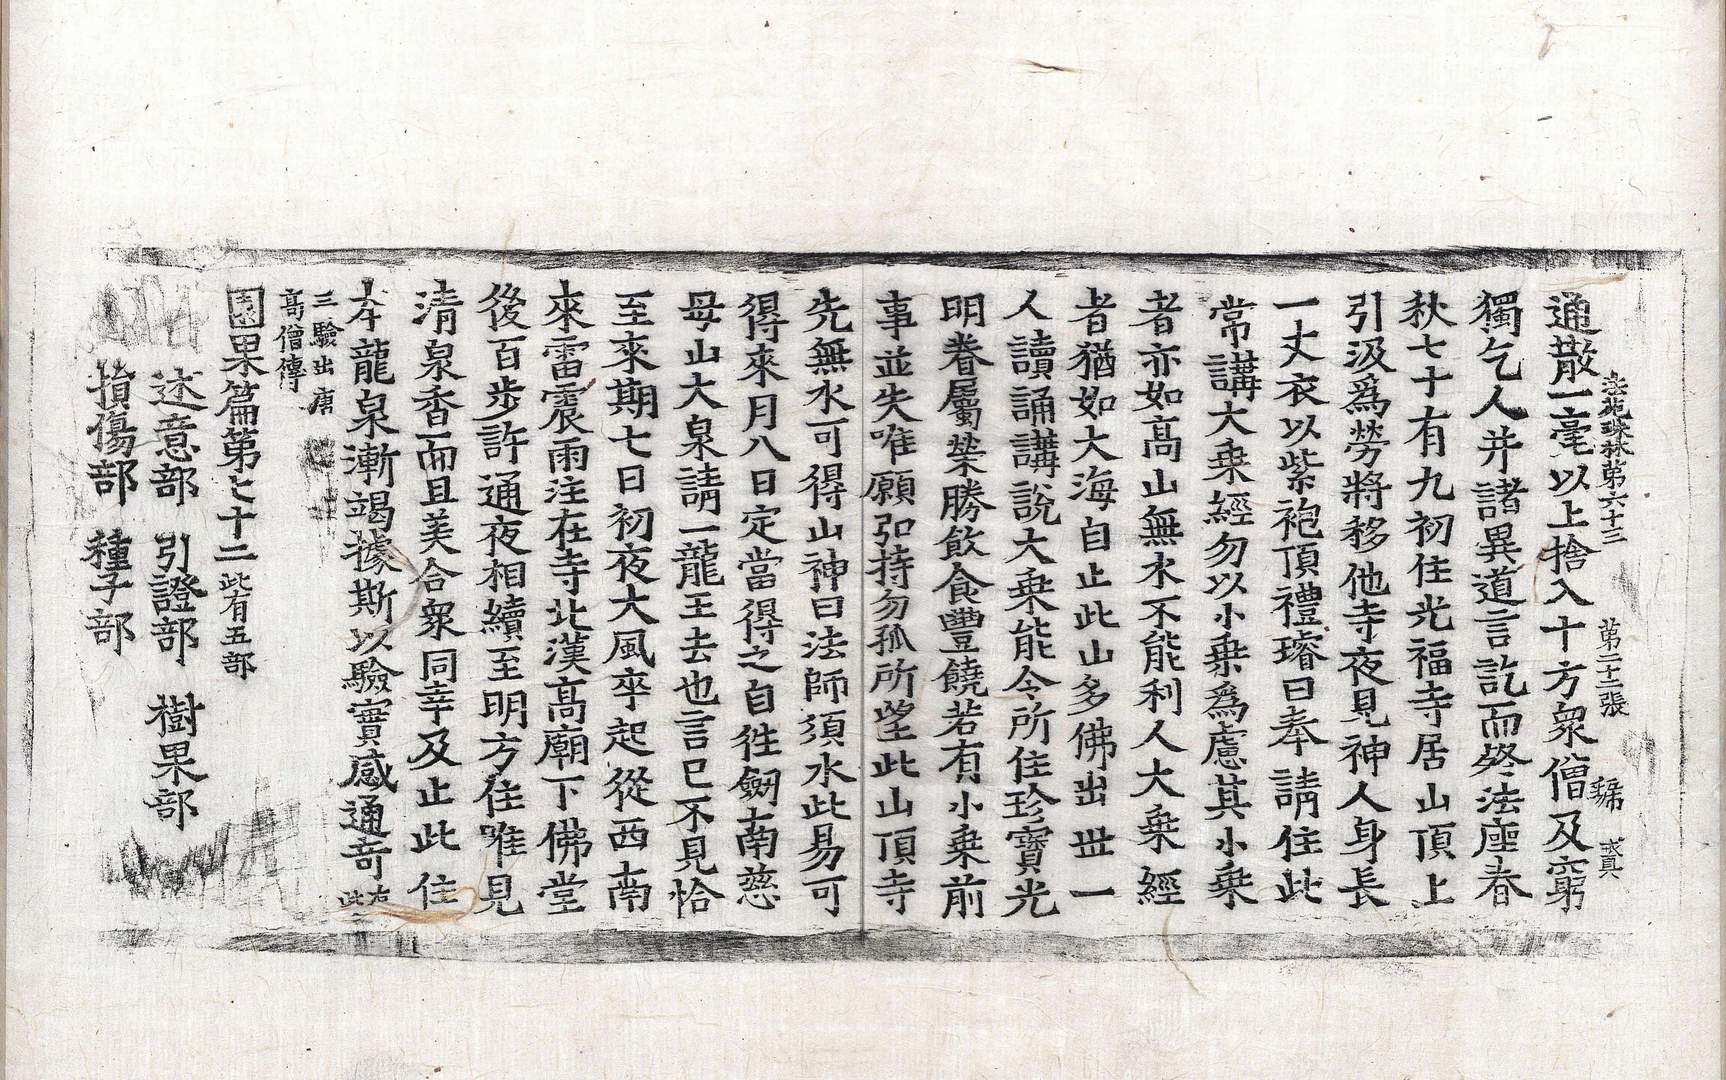 法苑珠林第六十三 第二十二張 
通散一毫以上捨入十方衆僧及窮
獨乞人并諸異道言訖而終法座春
秋七十有九初住光福寺居山頂上
引汲爲勞將移他寺夜見神人身長
一丈衣以紫袍頂禮璿曰奉請住此
常講大乗經勿以小乗爲慮其小乗
者亦如高山無水不能利人大乗經
者猶如大海自止此山多佛出世一
人讀誦講說大乗能令所住珍寶光
明眷屬榮勝飲食豐饒若有小乗前
事並失唯願弘持勿孤所望此山頂寺
先無水可得山神曰法師須水此易可
得來月八日定當得之自往劒南慈
母山大泉請一龍王去也言已不見恰
至來期七日初夜大風卒起從西南
來雷震雨注在寺北漢高廟下佛堂
後百步許通夜相續至明方住唯見
清泉香而且美合衆同幸及止此住
本龍泉漸竭據斯以驗實感通奇右此
三驗出唐
高僧傳
園果篇第七十二此有五部
述意部 引證部 樹果部
損傷部 種子部